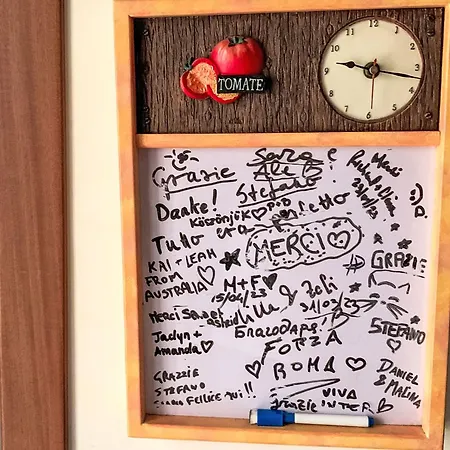 TOMATE
12
1
2
3
4
5
6
7
8
9
10
11
Grazie
Sara e
Ale B
Stefano
Merci
Danke!
Köszönjük
POD
Tutto
era
perfetto
MERCI
KAI + LEAH
FROM
AUSTRALIA
GRAZIE
M+F
15/04/23
&
Zoli
31/03/23
MERCI
Благодаря!
STEFANO
Jaclyn +
Amanda
FORZA
ROMA
DANIEL
& MALINA
GRAZZIE
STEFANO
FELICE QUI!!
VIVA
INTER